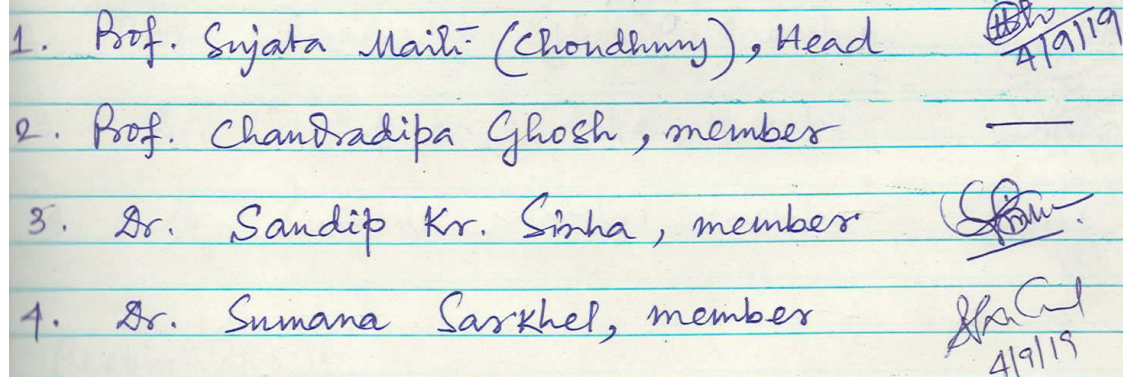 1. Prof. Sujata Maiti (Choudhury), Head
4/9/19
2. Prof. Chandradipa Ghosh, member
3. Dr. Sandip Kr. Sinha, member
4. Dr. Sumana Sarkhel, member
4/9/19